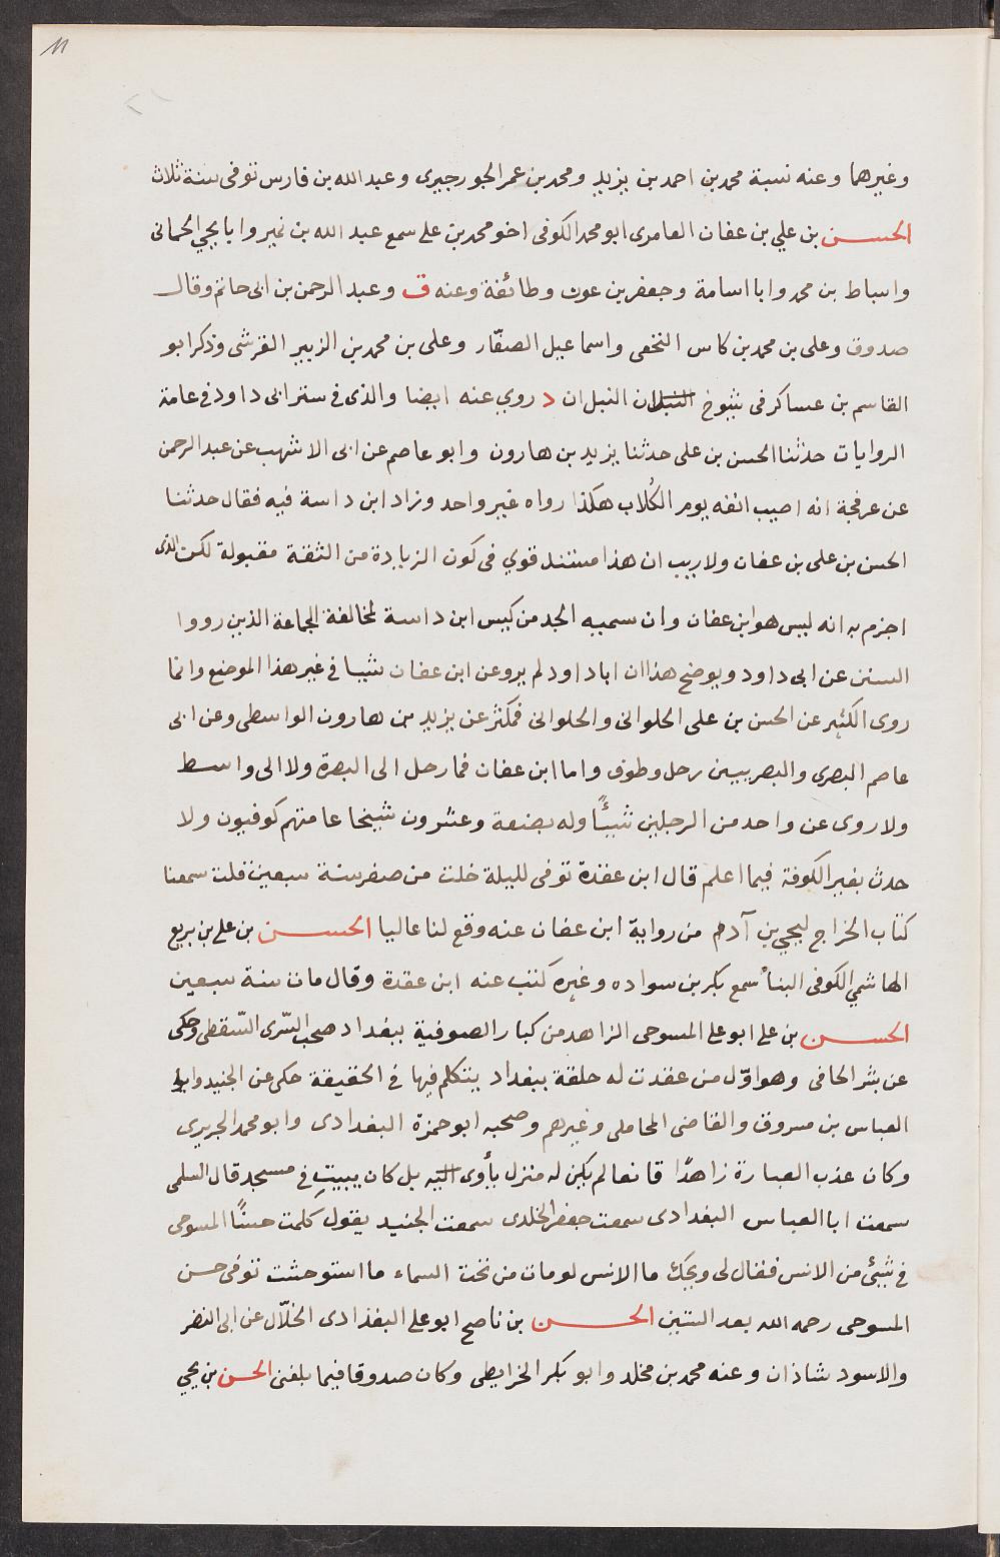 ١١
وغيرهما وعنه نسبة محمد بن احمد بن يزيد ومحمد بن عمر الجورجيرى وعبد الله بن فارس توفى سنة ثلاث
الحسن بن علي بن عفان العامرى ابو محمد الكوفى اخو محمد بن على سمع عبد الله بن نمير وابا يحيى الحمانى
واسباط بن محمد وابا اسامة وجعفر بن عون وطائفة وعنه ق وعبد الرحمن بن ابى حاتم وقال
صدوق وعلى بن محمد بن كاس النخعى واسماعيل الصفّار وعلى بن محمد بن الزبير القرشى وذكر ابو
القاسم بن عساكر فى شيوخ النبلان النبل ان د روي عنه ايضا والذى فى سنن ابى داود فى عامة
الروايات حدثنا الحسن بن على حدثنا يزيد بن هارون وابو عاصم عن ابى الاشهب عن عبد الرحمن
عن عرفجة انه اصيب انفه يوم الكُلاب هكذا رواه غير واحد وزاد ابن داسة فيه فقال حدثنا
الحسن بن على بن عفان ولا ريب ان هذا مستند قوي فى كون الزيادة من الثقة مقبولة لكن الذى
اجزم به انه ليس هو ابن عفان وان سمييه الجد من كيس ابن داسة لمخالفة الجماعة الذين رووا
السنن عن ابى داود ويوضح هذا ان ابا داود لم يرو عن ابن عفان شيا فى غير هذا الموضع وانما
روى الكثير عن الحسن بن على الحلوانى والحلوانى فمكثر عن يزيد بن هارون الواسطى وعن ابى
عاصم البصرى والبصريين رحل وطوف واما ابن عفان فما رحل الى البصرة ولا الى واسط
ولا روى عن واحد من الرجلين شيئًا وله بضعة وعشرون شيخا عامتهم كوفيون ولا
حدث بغير الكوفة فيما اعلم قال ابن عقدة توفى لليلة خلت من صفر سنة سبعين قلت سمعنا
كتاب الخراج ليحيى بن آدم من رواية ابن عفان عنه وقع لنا عاليا الحسن بن على بن بزيع
الهاشمي الكوفى البناء سمع بكر بن سواده وغيره كتب عنه ابن عقدة وقال مات سنة سبعين
الحسن بن على ابو على المسوحى الزاهد من كبار الصوفية ببغداد صحب السّرى السّقطى وحكى
عن بشر الحافى وهو اوّل من عقدت له حلقة ببغداد يتكلم فيها فى الحقيقة حكى عن الجنيد وابو
العباس بن مسروق والقاضى المحاملى وغيرهم وصحبه ابو حمزة البغدادى وابو محمد الجريرى
وكان عذب العبارة زاهدًا قانعا لم يكن له منزل يأوى اليه بل كان يبيت فى مسجد قال السلمى
سمعت ابا العباس البغدادى سمعت جعفر الخلدى سمعت الجنيد يقول كلمت حسنًا المسوحى
فى شيئ من الانس فقال لى ويحك ما الانس لو مات من تحت السماء ما استوحشت توفى حسن
المسوحى رحمه الله بعد الستين الحسن بن ناصح ابو على البغدادى الخلّال عن ابى النضر
والاسود شاذان وعنه محمد بن مخلد وابو بكر الخرايطى وكان صدوقا فيما بلغنى الحسن بن يحيى